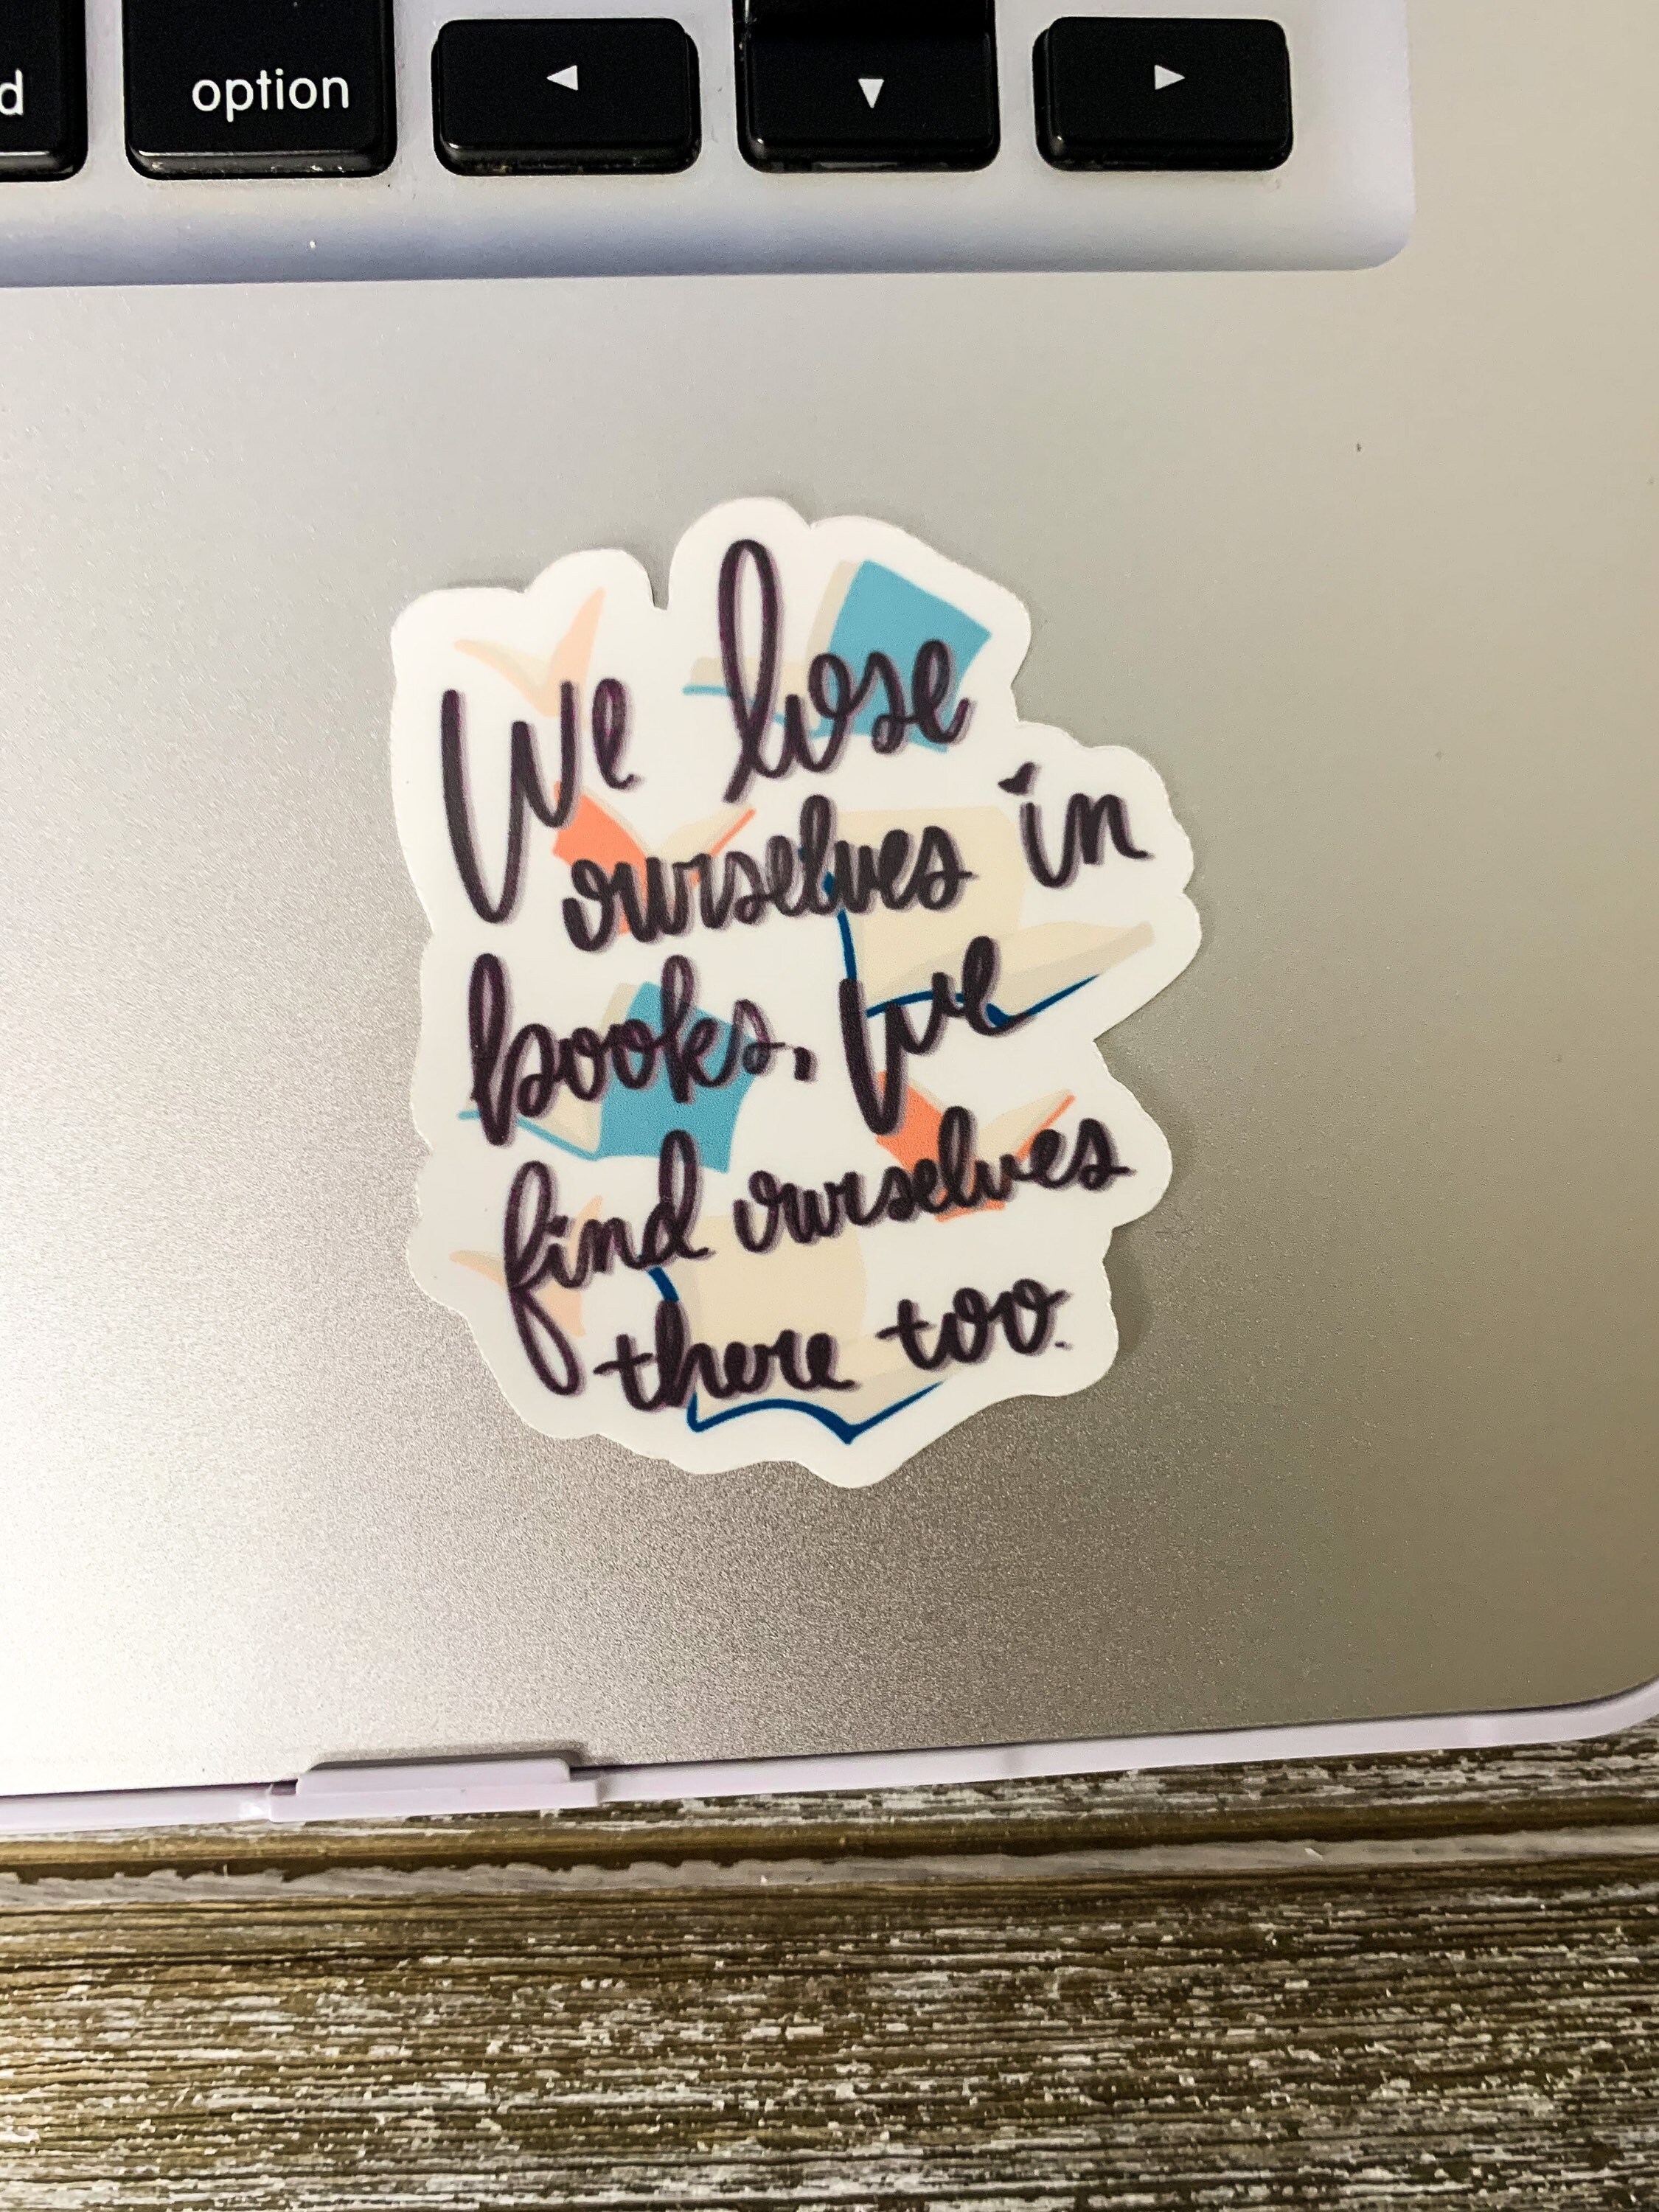 d option ◀ ▼ ▶
We lose
ourselves in
books, we
find ourselves
there too.